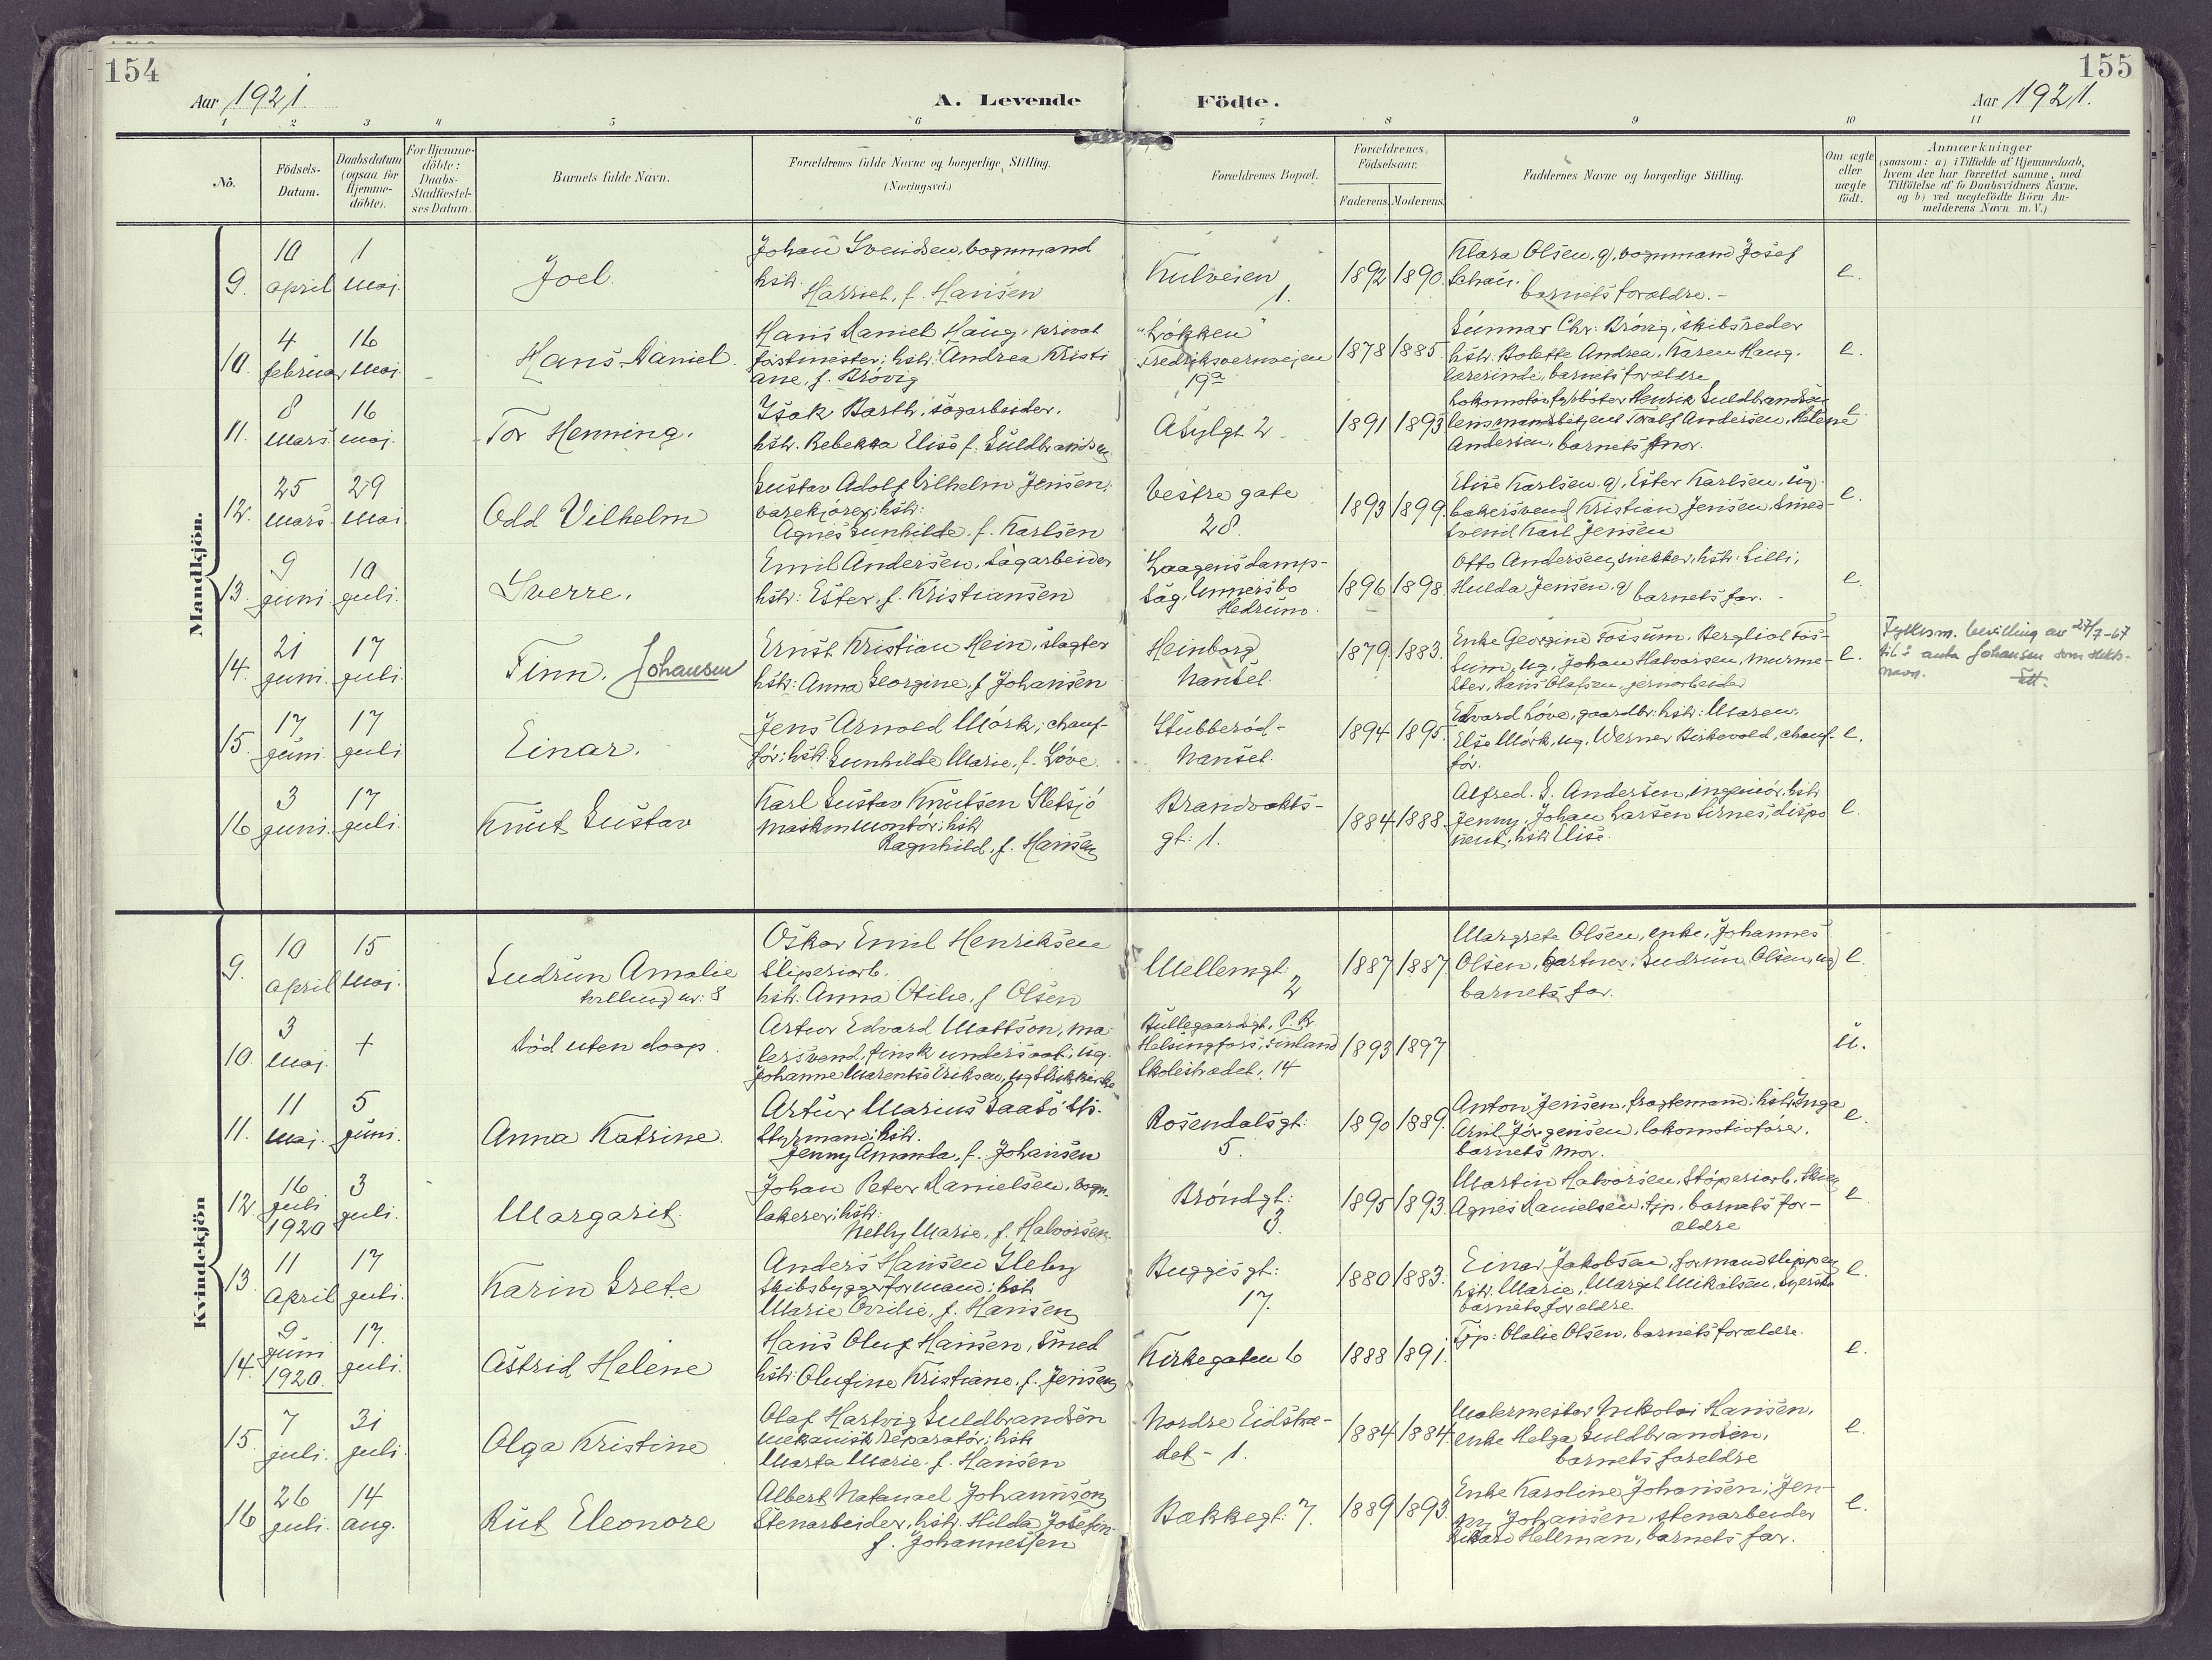 154
155
Aar 1921
A. Levende
Födte.
Aar 1921.
1 2 3 4 5 6 7 8 9 10 11
No.
Födsels-
Datum.
Daabsdatum
(ogsaa for
Hjemme-
döbte).
For Hjemme-
döbte:
Daabs-
Stadfæstel-
ses Datum.
Barnets fulde Navn.
Forældrenes fulde Navne og borgerlige Stilling.
(Næringsvei.)
Forældrenes Bopæl.
Forældrenes
Födselsaar.
Faderens. Moderens.
Faddernes Navne og borgerlige Stilling.
Om ægte
eller
uægte
födt.
Anmærkninger
(saasom: a) i Tilfælde af Hjemmedaab,
hvem der har forrettet samme, med
Tilföielse af to Daabsvidners Navne.
og b) ved uægtefödte Börn An-
melderens Navn m. V.)
Mandkjön.
9.
10
april
1
maj.
Joel
Johan Svendsen, vognmand
hstr.
Harriet, f. Hansen
Kulveien
1.
1892 1890.
Klara Olsen, g, vognmand Josef
barnets forældre. -
e.
10.
4
februar
16
maj.
Hans Daniel.
Hans Daniel Haug, privat
hstr: Andrea Kristi
ane, f. Brövig
"Lökken"
Fredriksvernveien
19a
1878 1885.
Gunnar Chr. Brövig, skibsreder
hstr. Bolette Andrea. Karen Haug.
lærerinde, barnets forældre
e.
11.
8
mars
16
maj.
Tor Henning.
Isak Barth, sagarbeider.
hstr. Rebekka Elise f. Guldbrandsen
Asylgt 2
1891 1893
Lokomotivfyrböter Henrik Guldbrandsen
lensmandsbetjent Toralf Andersen, Helene
Andersen, barnets mor.
e.
12.
25
mars
29
mai
Odd Vilhelm
Gustav Adolf Vilhelm Jensen,
varekjörer; hstr:
Agnes Gunhilde, f. Karlsen
Vestre gate
28.
1893 1899.
Elise Karlsen, g, Ester Karlsen, ug.
bakersvend Kristian Jensen, Smed-
svend Karl Jensen
e.
13.
9
juni
10
juli.
Sverre.
Emil Andersen, Sagarbeider
hstr: Ester, f. Kristiansen
Laagens damp-
sag, Unnersbo
Hedrum.
1896 1898
Otto Andersen, snekker, hstr: Lilli,
Hulda Jensen, g, barnets far. -
e.
14.
21
juni.
17
juli.
Finn. Johansen
Ernst Kristian Hein, slagter
hstr: Anna Georgine, f. Johansen
Heinborg
Nanset.
1879. 1883.
Enke Georgine Fossum. Bergliot Fos-
sum, ug. Johan Halvorsen, murme-
ster, Hans Olafsen, jernarbeider
e.
Fylkesm. bevilling av 27/7-67
til å anta Johansen som slekts-
navn.
15.
17
juni.
17
juli
Einar.
Jens Arnold Mörk; chauf-
för; hstr. Gunhilde Marie, f. Löve
Stubberöd-
Nanset.
1894 1895.
Edvard Löve, gaardbr. hstr: Maren.
Else Mörk, ug. Werner Birkevold, chauf-
för.
e.
16
3
juni.
17
juli.
Knut Gustav
Karl Gustav Knutsen Sletsjö
maskinmontör; hstr
Ragnhild, f. Hansen
Brandvakts-
gt: 1.
1884 1888.
Alfred. G. Andersen, ingeniör, hstr
Jenny; Johan Larsen Lirnes, dispo
nent, hstr Elise.
e.
Kvindekjön
9.
10
april
15
maj.
Gudrun Amalie
tvilling nr: 8
Oskar Emil Henriksen
Sliperiarb.
hstr: Anna Otilie, f Olsen
Mellemgt:
2
1887 1887
Margrete Olsen, enke, Johannes
Olsen, gartner. Gudrun Olsen, ug
barnets far.
e.
10.
3
maj.
+
Död uten daap.
Artur Edvard Mattson, ma
lersvend, finsk undersaat, ug.
Johanne Marentse Eriksen, ug
Bullegaardsgt, P. R.
Helsingfors, Finland
Skolestrædet, 14
1893 1897
u.
11.
11
maj.
5
juni.
Anna Katrine.
Artur Marius
Styrmand; hstr.
Jenny Amanda, f. Johansen
Rosendalsgt:
5.
1890 1889.
Anton Jensen, fragtemand; hstr Inga
Arnt Jörgensen, lokomotivförer.
barnets mor.
e.
12.
16
juli
1920
3
juli.
Margarit.
Johan Peter Danielsen, vogn-
lakerer; hstr:
Nelly Marie, f. Halvorsen
Bröndgt:
3.
1895 1893.
Martin Halvorsen, Stöperiarb, Skien
Agnes Danielsen, tjp. barnets for-
ældre
e
13.
11
april
17
juli.
Karin Grete
Anders Hansen Sleby
Skibsbyggerformand; hstr
Marie Ovidie, f. Hansen
Buggesgt:
17.
1880 1883.
Einar Jakobsen, formand slippen
hstr. Marie, Margit Mikalsen, Syerske
barnets forældre.
e.
14.
9
juni
1920.
17.
juli.
Astrid Helene
Hans Oluf Hansen, Smed
hstr: Olufine Kristiane, f. Jensen
Kirkegaten 6
1888 1891.
Tjp: Olalie Olsen, barnets forældre.
e.
15.
7
juli.
31
juli.
Olga Kristine
Olaf Hartvig Guldbrandsen
mekanisk reparatör; hstr
Marta Marie. f. Hansen
Nordre Eidstræ-
det - 1.
1884 1884.
Malermester Nikolai Hansen,
enke Helga Guldbrandsen,
barnets foreldre
e.
16
26
juli.
14
aug.
Rut Eleonore
Albert Natanael Johannson
Stenarbeider, hstr. Hilda Josefin
f. Johannessen
Bakkegt: 7.
1889 1893.
Enke Karoline Johansen; Jen-
ny Johansen, stenarbeider
Rikard Hellman, barnets far.
e.